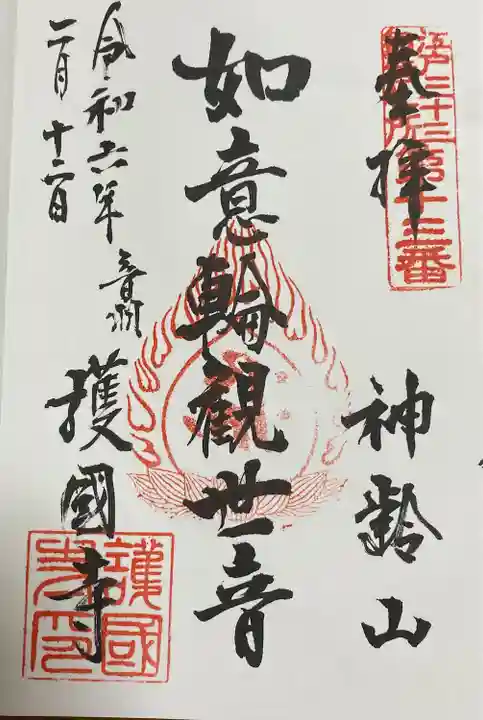 奉拝
江戸三十三
第十三番
神齢山
如意輪観世音
令和六年
二月十二日
音羽
護國寺
護國
寺印